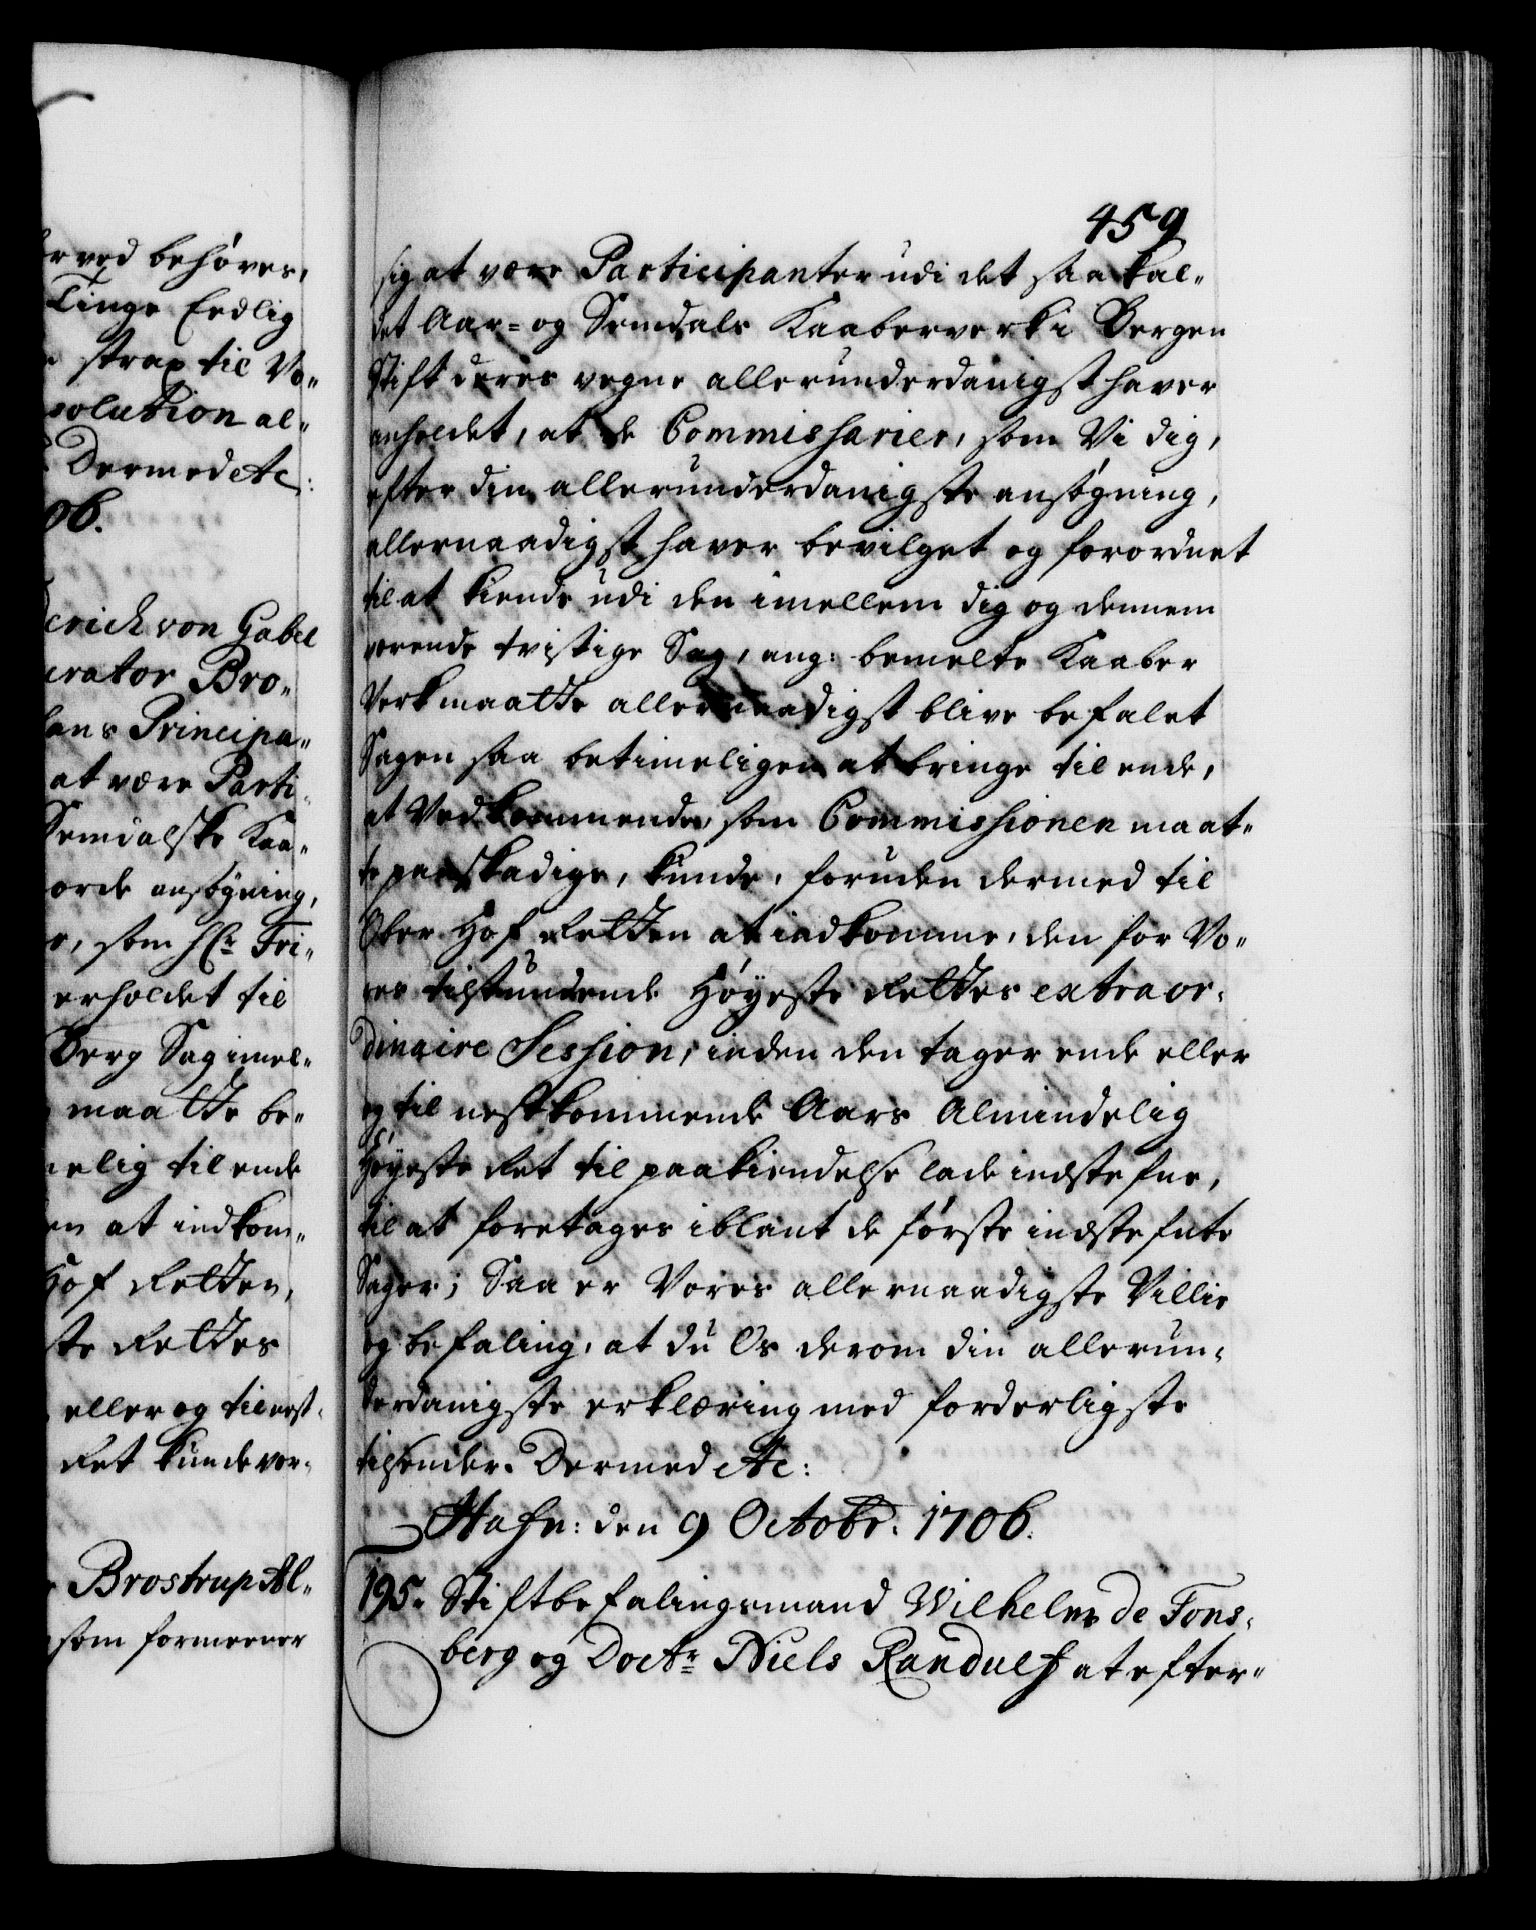 erved behøves,
Tinge Endlig
strax til Vo-
solution al-
Dermed etc:
06.
erich von Gabel
erator Bro-
ans Principa-
at være Parti-
Semdalske Kaa-
orde ansøgning,
som Hr: Fri-
erholdet til
Berg Sag imel-
maatte be-
elig til ende
en at indkom-
Hof Retten,
ste Rettes
eller og til nest-
Ret kunde vor-
Brostrup Al-
som formeener
459
sig at være Participanter udi det saa kal-
det Aar- og Semdals Kaaberverk i Bergen
Stift deres vegne allerunderdanigst haver
anholdet, at de Commissarier, som Vi dig,
efter din allerunderdanigste ansøgning,
allernaadigst haver bevilget og forordnet
til at kiende udi den imellem dig og dennem
værende tvistige Sag, ang: bemelte Kaaber
Verk maatte allernaadigst blive befalet
Sagen saa betimeligen at bringe til ende,
at Vedkommende, som Commissionen maat-
te paaskadige, kunde, foruden dermed til
Ober Hof Retten at indkomme, den for Vo-
res tilstundende Høyeste Rettes extraor-
dinaire Session, inden den tager ende eller
og til nestkommende Aars Almindelig
Høyeste Ret til paakiendelse lade indstefne,
til at foretages iblant de første indstefnte
Sager; Saa er Vores allernaadigste Villie
og befaling, at du Os derom din allerun-
derdanigste erklæring med forderligste
tilsender. Dermed etc:
Hafn: den 9 Octobr: 1706.
195. Stiftbefalingsmand Wilhelm de Tons-
berg og Doctr Niels Randulf at efter-